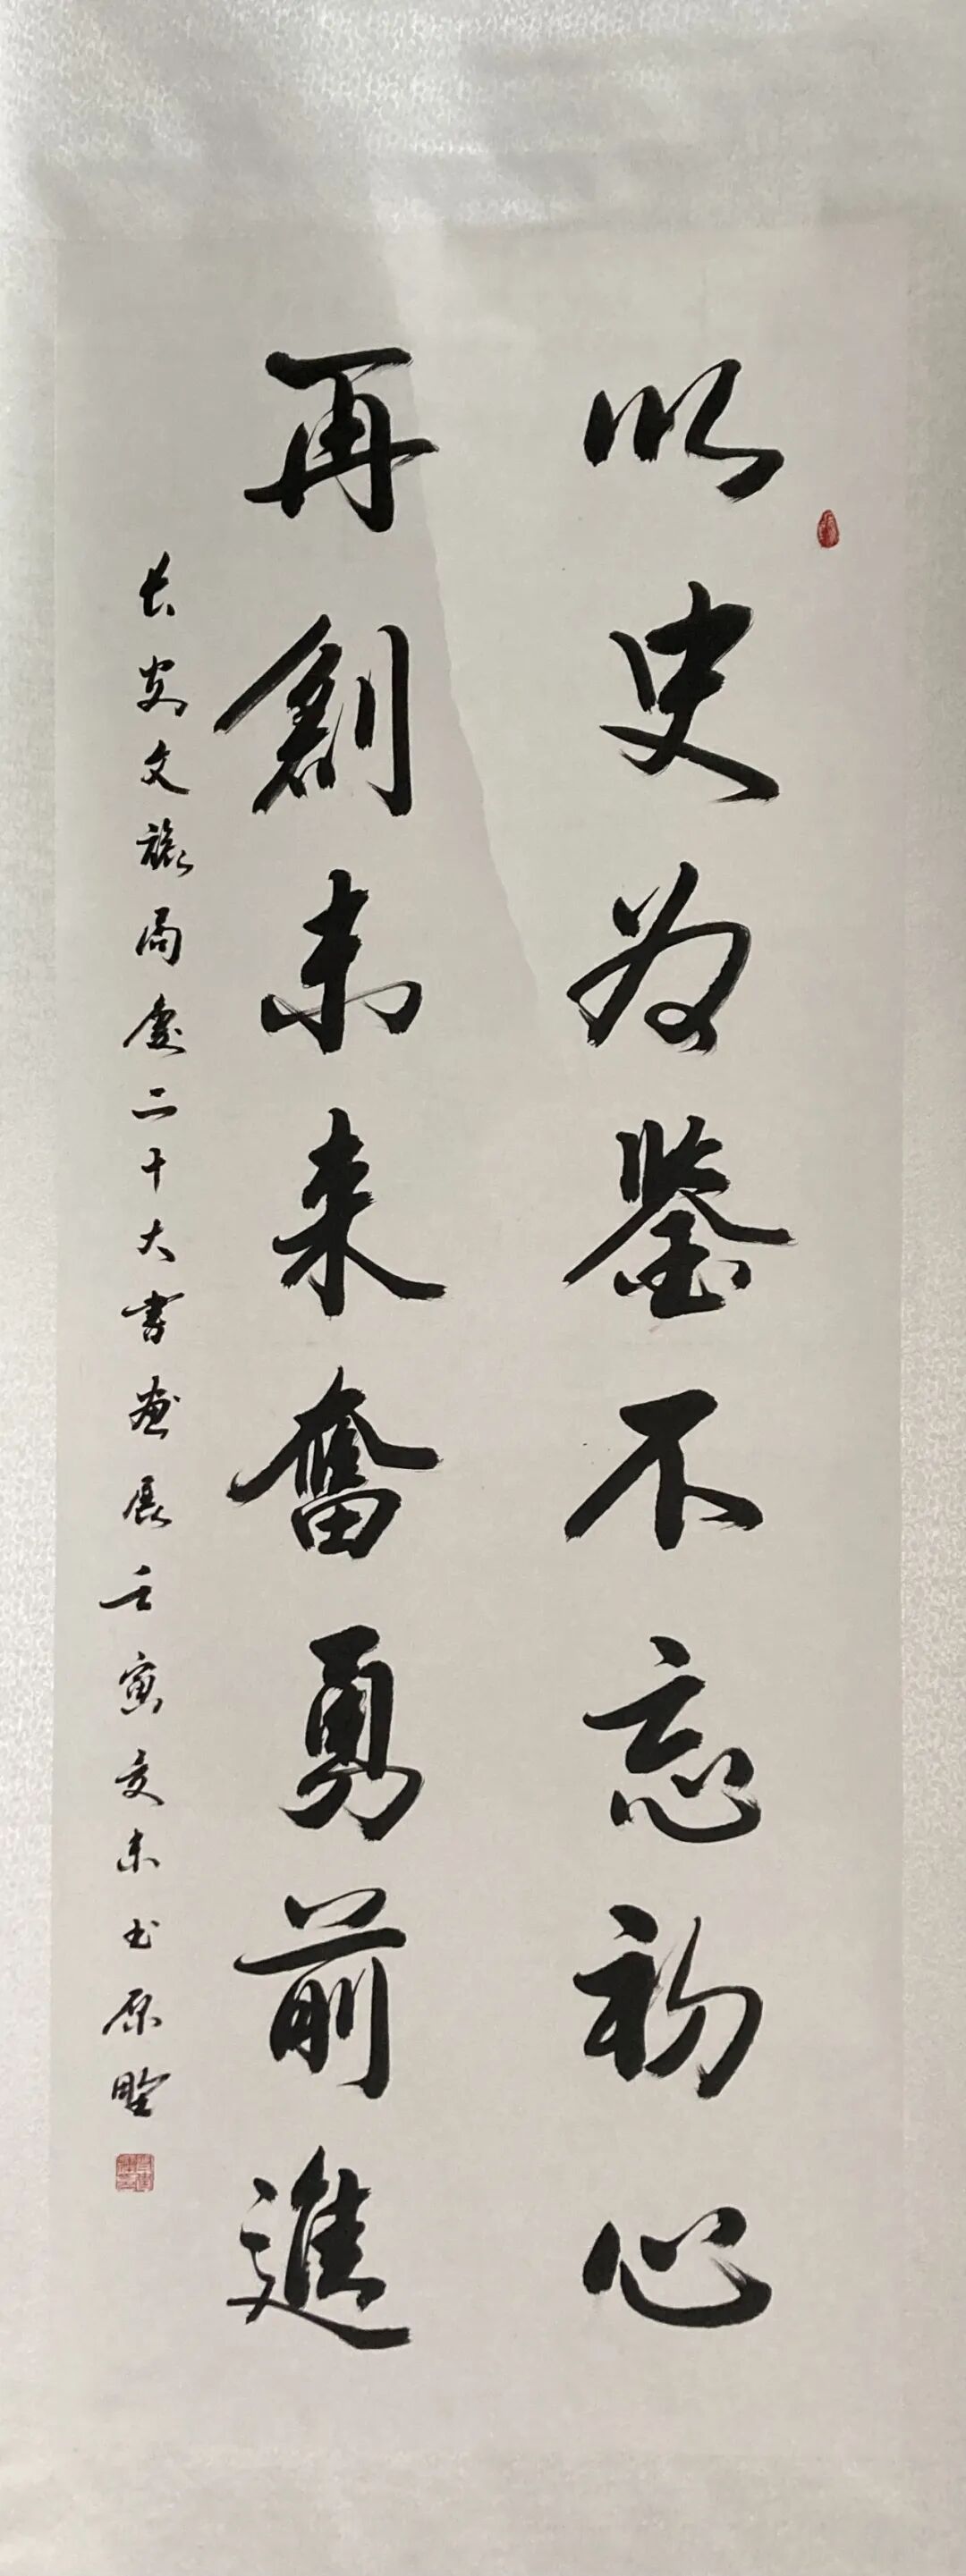 以史为鉴不忘初心
再創未来奮勇前進
长安文旅局慶二十大書画展壬寅文东书原野